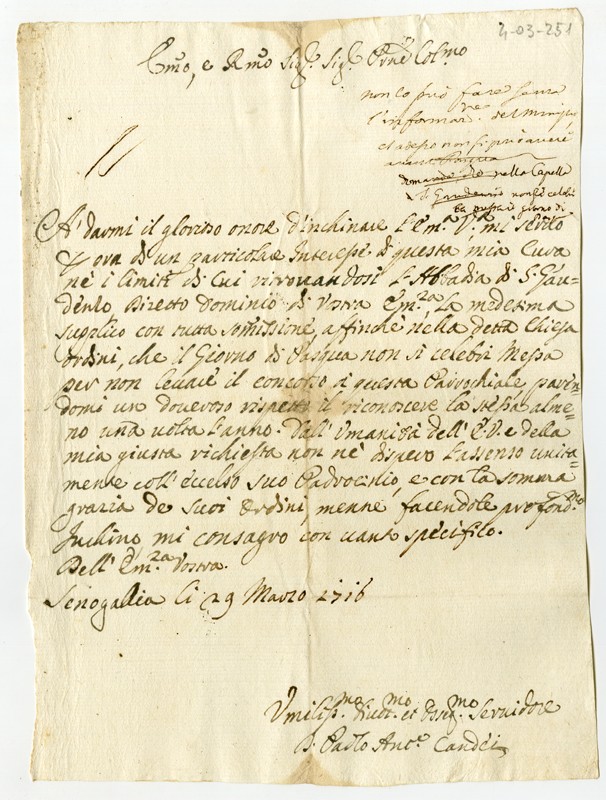 4-03-251
Em̃o, e Rmo Sig.r Sig.r Prõne Col.mo
non lo può fare senza
l'informar.ne del Ministro
et adesso non si può avere
nella Capella
di Gaudenzio non si celebri
giorno di
A' darmi il glorioso onore d'inchinare l'Em.a V.ra mi serve
p ora di un particolare Interesse di questa mia Cura
nè i limiti di Cui ritrovandosi l'Abbadia di S. Gau=
denzo Diretto Dominio di Vostra Em.za, La medesima
supplico con tutta somissione, affinche nella detta Chiesa
ordini, che il Giorno di Pasqua non si celebri Messa
per non levare il concorso di questa Parochiale, paren=
domi un doveroso rispetto il riconoscere la stessa alme=
no una volta l'anno. Dall'Umanità dell'E.V. e della
mia giusta richiesta non nè dispero l'assenso unita=
mente coll'eccelso suo Padrocinio, e con la somma
grazia de suoi ordini, mentre facendole profond.mo
Inchino mi consagro con vanto specifico.
Dell'Em.za Vostra.
Senogallia li 29 Marzo 1716
Umiliss.mo Divot.mo et Osseq.mo Servidore
D. Paolo Ant.o Candei